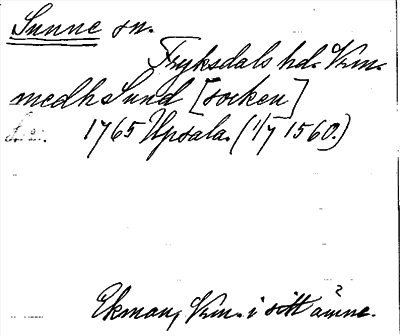 Sunne sn.
Fryksdals hd. Vrm.
medh Sund [socken]
1765 Upsala. (1/7 1560.)
Ekman, Vrm. i sitt ämne.